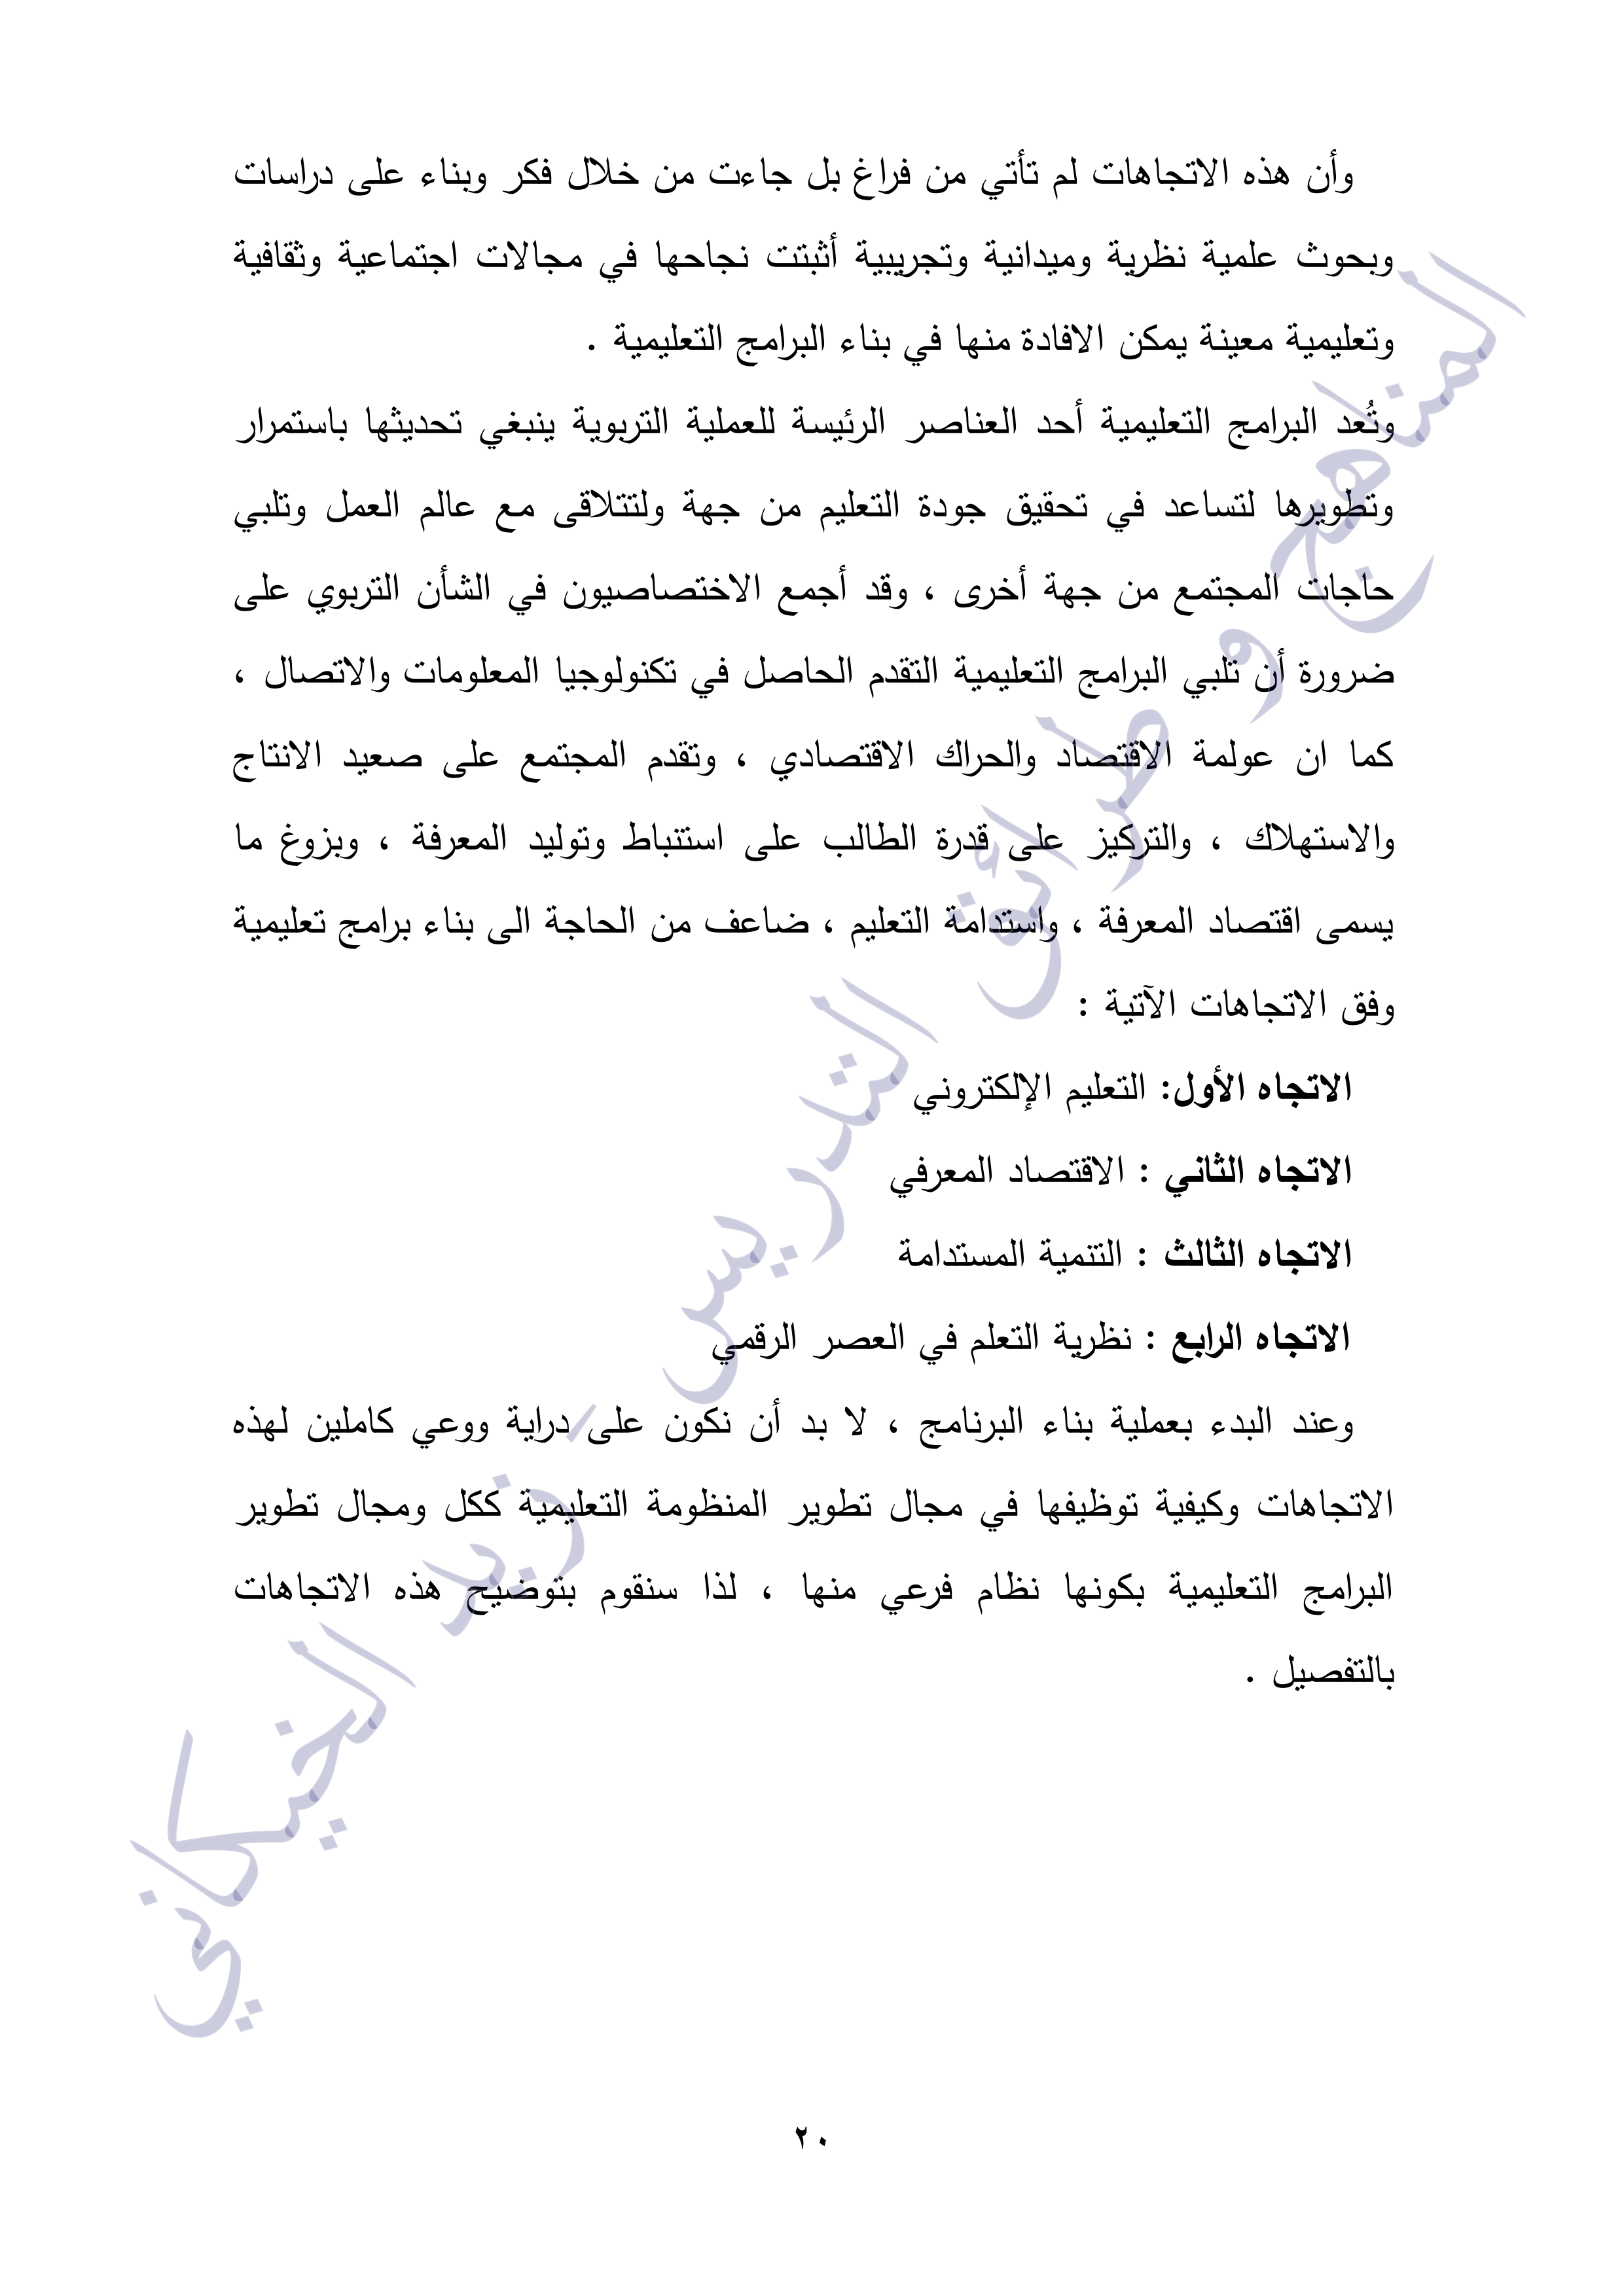 وأن هذه الاتجاهات لم تأتي من فراغ بل جاءت من خلال فكر وبناء على دراسات
وبحوث علمية نظرية وميدانية وتجريبية أثبتت نجاحها في مجالات اجتماعية وثقافية
وتعليمية معينة يمكن الافادة منها في بناء البرامج التعليمية .
وتُعد البرامج التعليمية أحد العناصر الرئيسة للعملية التربوية ينبغي تحديثها باستمرار
وتطويرها لتساعد في تحقيق جودة التعليم من جهة ولتتلاقى مع عالم العمل وتلبي
حاجات المجتمع من جهة أخرى ، وقد أجمع الاختصاصيون في الشأن التربوي على
ضرورة أن تلبي البرامج التعليمية التقدم الحاصل في تكنولوجيا المعلومات والاتصال ،
كما ان عولمة الاقتصاد والحراك الاقتصادي ، وتقدم المجتمع على صعيد الانتاج
والاستهلاك ، والتركيز على قدرة الطالب على استنباط وتوليد المعرفة ، وبزوغ ما
يسمى اقتصاد المعرفة ، واستدامة التعليم ، ضاعف من الحاجة الى بناء برامج تعليمية
وفق الاتجاهات الآتية :
الاتجاه الأول: التعليم الإلكتروني
الاتجاه الثاني : الاقتصاد المعرفي
الاتجاه الثالث : التنمية المستدامة
الاتجاه الرابع : نظرية التعلم في العصر الرقمي
وعند البدء بعملية بناء البرنامج ، لا بد أن نكون على دراية ووعي كاملين لهذه
الاتجاهات وكيفية توظيفها في مجال تطوير المنظومة التعليمية ككل ومجال تطوير
البرامج التعليمية بكونها نظام فرعي منها ، لذا سنقوم بتوضيح هذه الاتجاهات
بالتفصيل .
المناهج و طرائق التدريس - زيد الخيكاني
٢٠